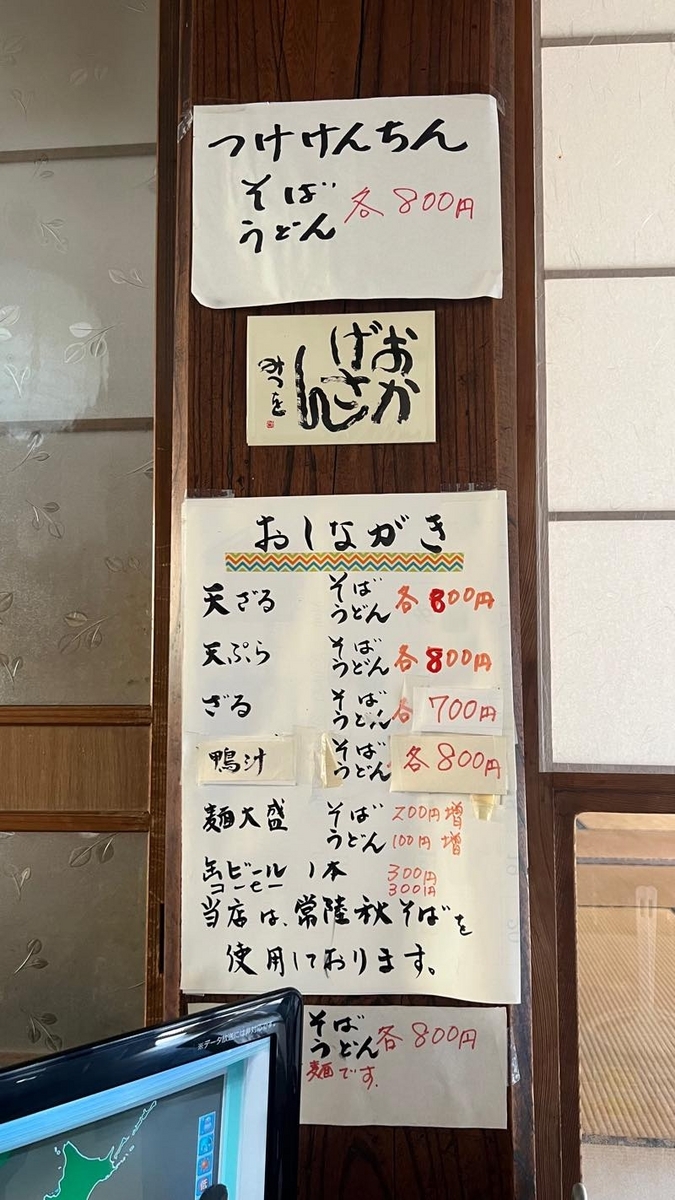 つけけんちん
そば
うどん
各800円
おか
げさ
ん
みつを
おしながき
天ざる そば うどん 各800円
天ぷら そば うどん 各800円
ざる そば うどん 各700円
鴨汁 そば うどん 各800円
麺大盛 そば 200円増
うどん 100円増
缶ビール 1本 300円
コーヒー 300円
当店は、常陸秋そばを
使用しております。
そば
うどん
各800円
麺です.
※データ放送には非対応です。